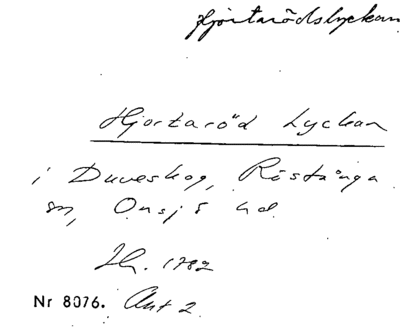 Hjortarödslyckan
Hjortaröd Lyckan
i Duveskog, Röstånga
sn, Onsjö hd
Nr 8076. Akt 2